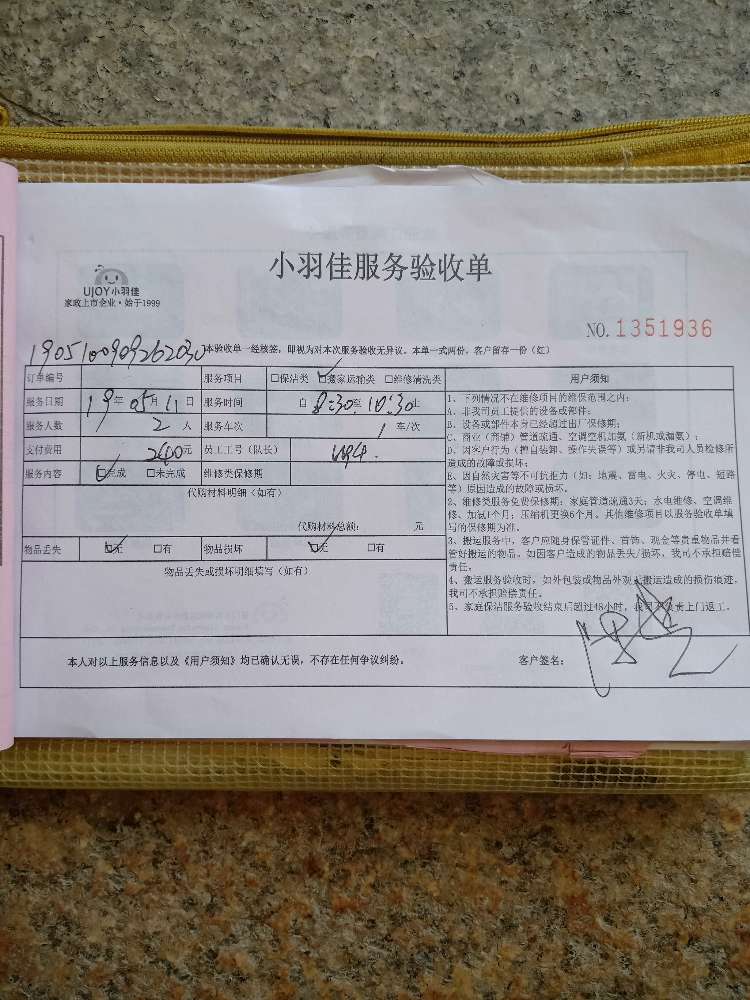 UJOY小羽佳
家政上市企业·始于1999
小羽佳服务验收单
NO. 1351936
1905100909262030
本验收单一经核签，即视为对本次服务验收无异议。本单一式两份，客户留存一份（红）
订单编号 服务项目 □保洁类 ☑搬家运输类 □维修清洗类 用户须知
服务日期 19年05月11日 服务时间 自8:30至10:30止
服务人数 2人 服务车次 1车/次
支付费用 2400元 员工工号（队长）
服务内容 ☑完成 □未完成 维修类保修期
代购材料明细（如有）
代购材料总额： 元
物品丢失 ☑无 □有 物品损坏 ☑无 □有
物品丢失或损坏明细填写（如有）
1、下列情况不在维修项目的维保范围之内：
A、非我司员工提供的设备或部件；
B、设备或部件本身已经超过出厂保修期；
C、商业（商铺）管道疏通、空调空机加氨（新机或漏氨）；
D、因客户行为（擅自装卸、操作失误等）或另请非我司人员检修所
造成的故障或损坏；
E、因自然灾害等不可抗拒力（如：地震、雷电、火灾、停电、短路
等）原因造成的故障或损坏。
2、维修类服务免费保修期：家庭管道疏通3天；水电维修、空调维
修、加氨1个月；压缩机更换6个月。其他维修项目以服务验收单填
写的保修期为准。
3、搬运服务中，客户应随身保管证件、首饰、现金等贵重物品并看
管好搬运的物品，如因客户造成的物品丢失/损坏，我司不承担赔偿
责任。
4、搬运服务验收时，如外包装或物品外观无搬运造成的损伤痕迹，
我司不承担赔偿责任。
5、家庭保洁服务验收结束后超过48小时，我司不负责上门返工。
本人对以上服务信息以及《用户须知》均已确认无误，不存在任何争议纠纷。 客户签名：